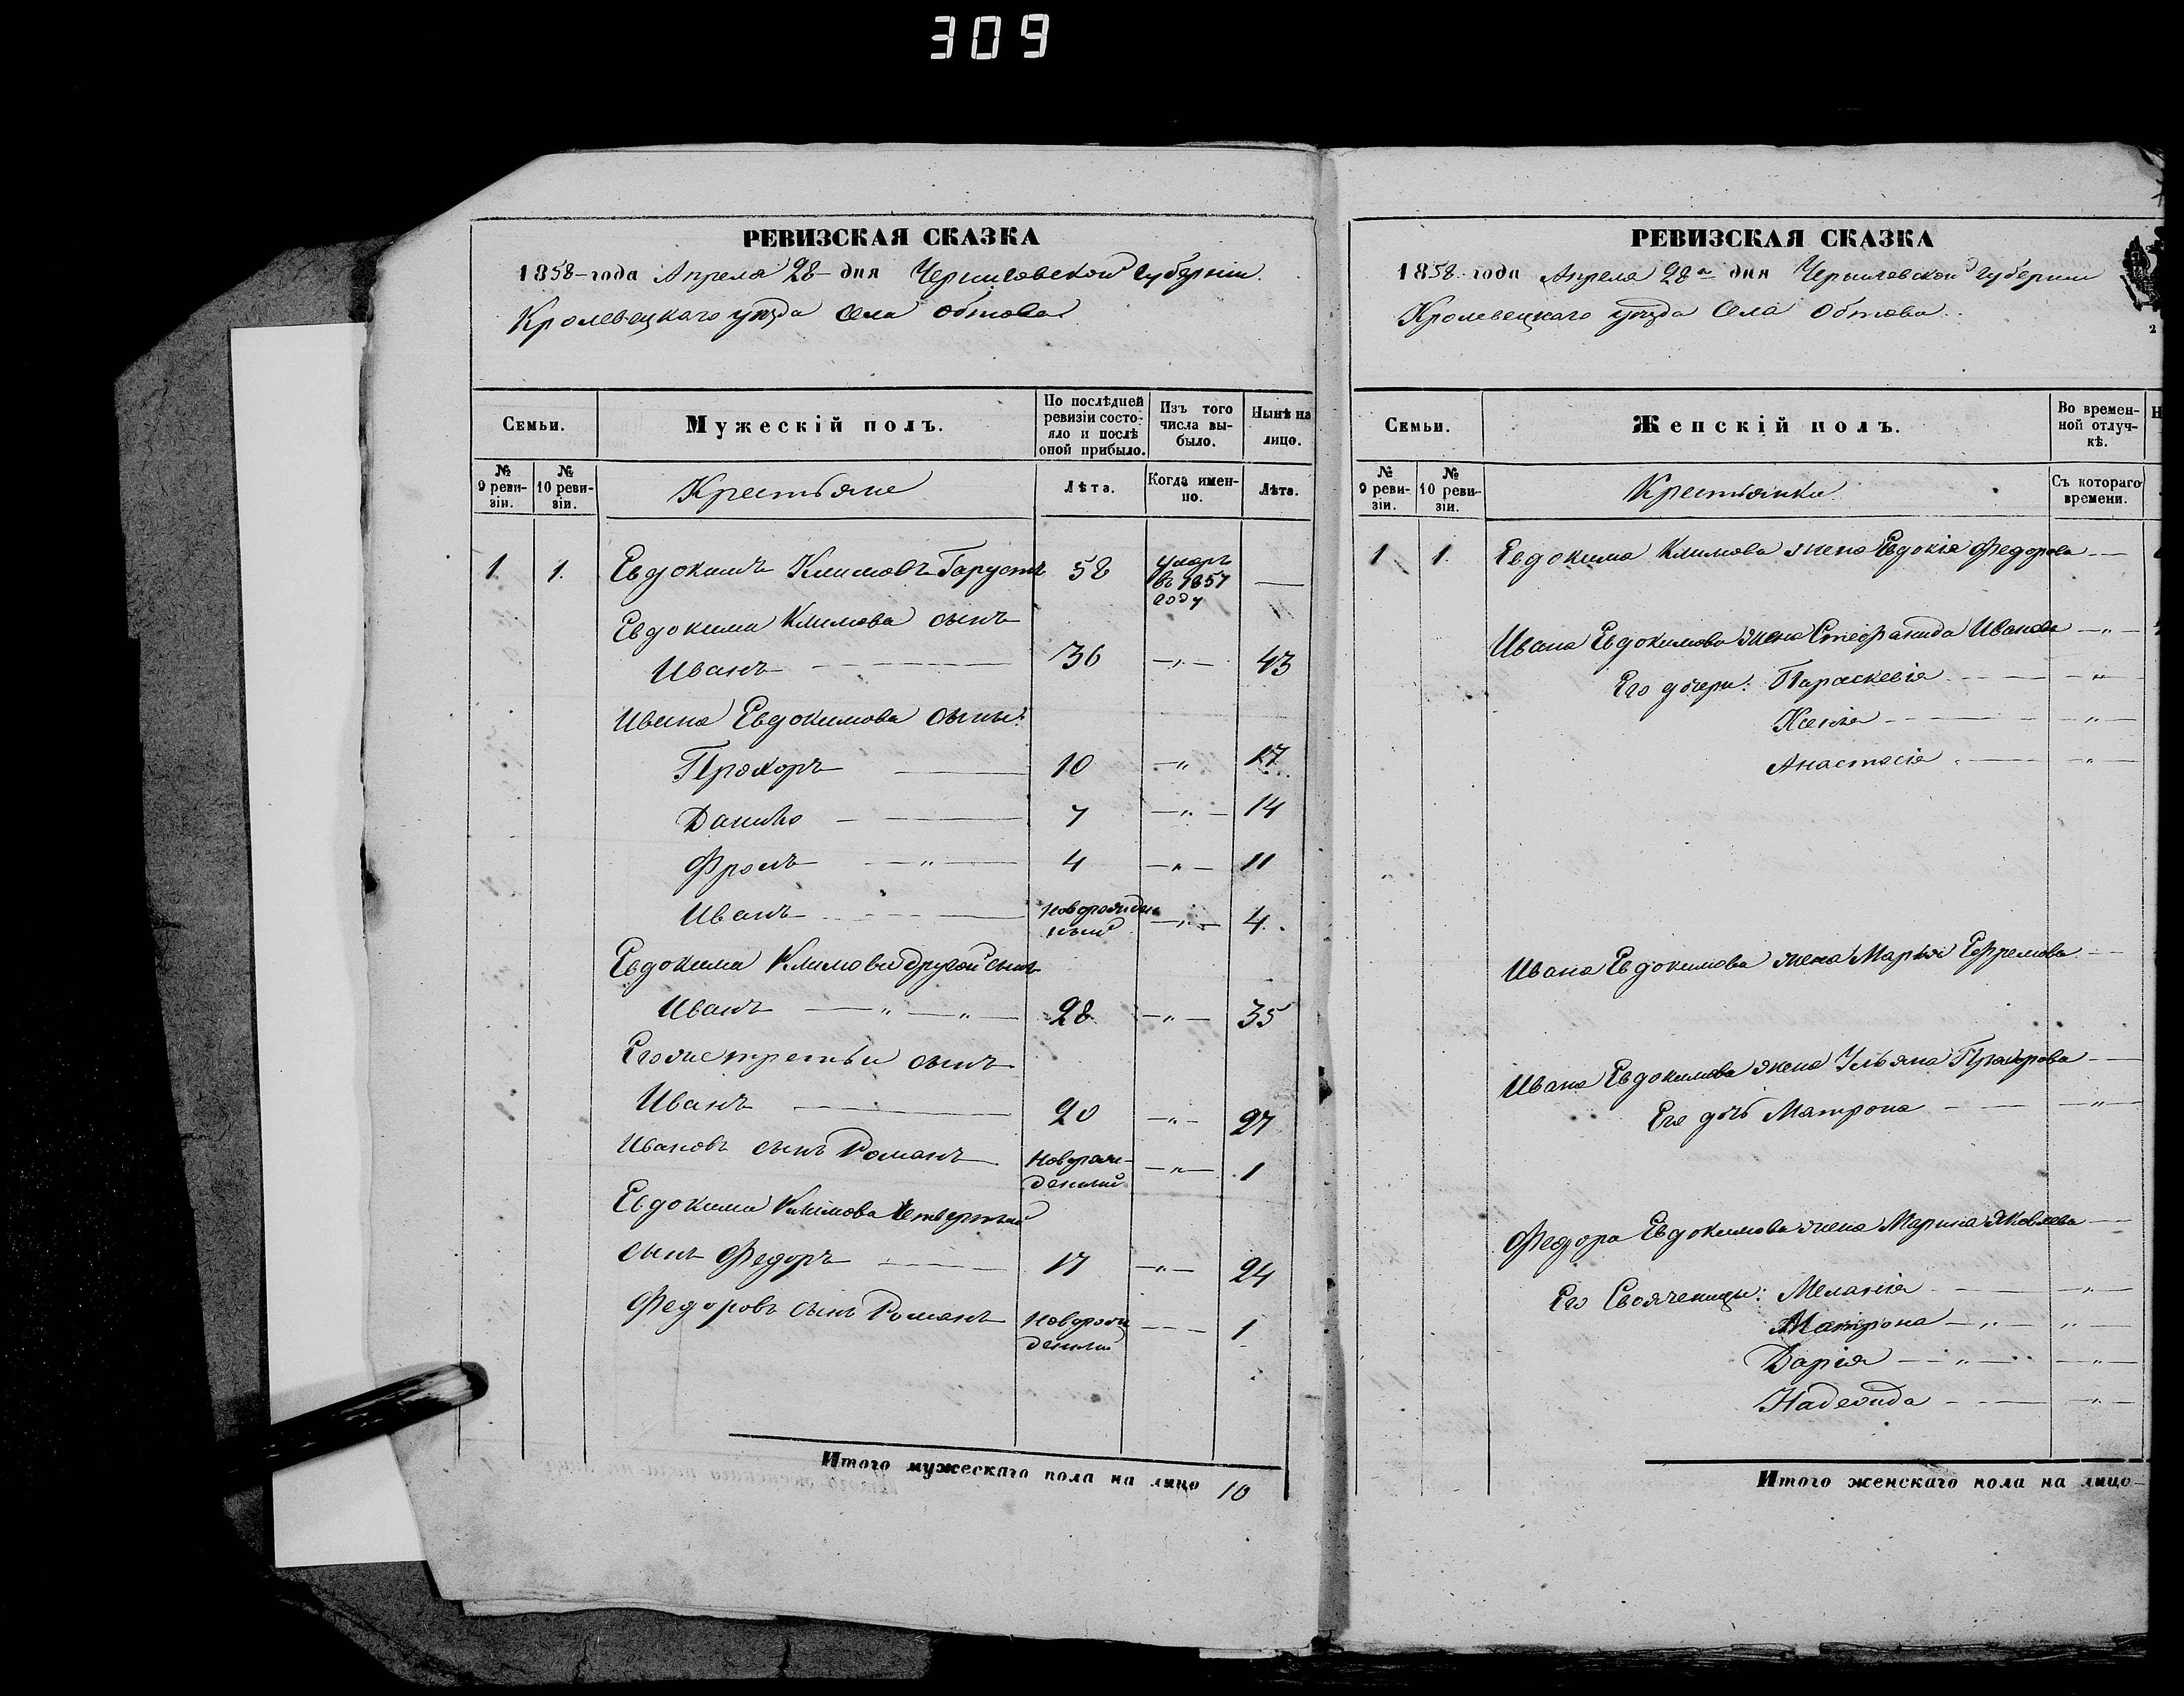 309
РЕВИЗСКАЯ СКАЗКА
1858 года Апреля 28 дня Черниговской губерніи
Кролевецкаго уѣзда села Обтова
Семьи.
Мужескій полъ.
По послѣдней ревизіи состояло и послѣ оной прибыло.
Изъ того числа выбыло.
Нынѣ на лицо.
№ 9 ревизіи.
№ 10 ревизіи.
Крестьяне
Лѣта.
Когда именно.
Лѣта.
1 1. Евдокимъ Климовъ Гарустъ 58 умеръ въ 1857 году —
Евдокима Климова сынъ
Иванъ 36 —„— 43
Ивана Евдокимова сыны:
Прохоръ 10 —„ 17
Данило 7 —„— 14
Фролъ —„— 4 —„— 11
Иванъ новорожденный —„— 4.
Евдокима Климова другой сынъ
Иванъ —„—„— 28 —„— 35
Его же третьи сынъ
Иванъ 20 —„— 27
Ивановъ сынъ Романъ Новорожденный —„— 1
Евдокима Климова четвертый
сынъ Федоръ 17 —„— 24
Федоровъ сынъ Романъ Новорожденный — 1
Итого мужескаго пола на лицо 10
РЕВИЗСКАЯ СКАЗКА
1858 года Апреля 28 дня Черниговской губерніи
Кролевецкаго уѣзда Села Обтова.
Семьи.
Женскій полъ.
Во временной отлучкѣ.
№ 9 ревизіи.
№ 10 ревизіи.
Крестьянки
Съ котораго времени.
1 1. Евдокима Климова жена Евдокія Федорова —
Ивана Евдокимова жена Стефанида Иванова —„—
Его дочери: Параскевія —„—
Ксенія —„—
Анастасія —„—
Ивана Евдокимова жена Марья Ефремова —
Ивана Евдокимова жена Ульяна Прохорова —
Его дочь Матрона —„—
Федора Евдокимова жена Марина Яковлева —
Его Свояченицы: Меланія —„—
Матрона —„— „—
Дарія —„— —„—
Надежда —„—
Итого женскаго пола на лицо